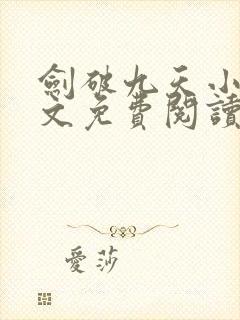 劍破九天小
文免費閱讀
愛莎